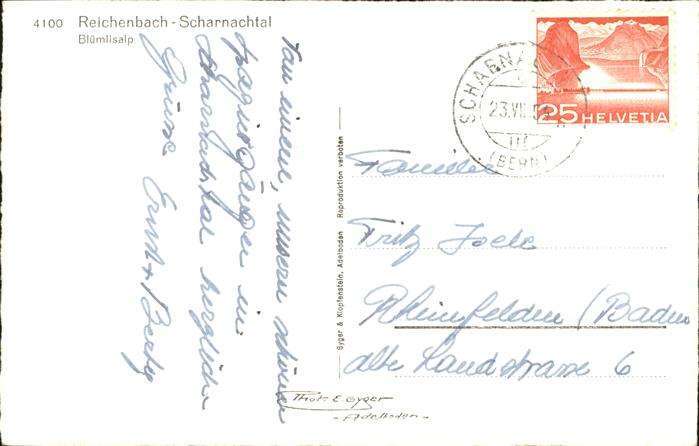 4100 Reichenbach - Scharnachtal
Blümlisalp
Von einem, unseren schönen
Spaziergänge im
Scharnachtal herzliche
Grüsse Ernst + Berty
Gyger & Klopfenstein, Adelboden Reproduktion verboten
SCHARNA
23.VII.5
(BERN)
25 HELVETIA
Familie
Fritz
Rheinfelden (Baden
alte Landstrasse 6
Phot. E. Gyger
- Adelboden -